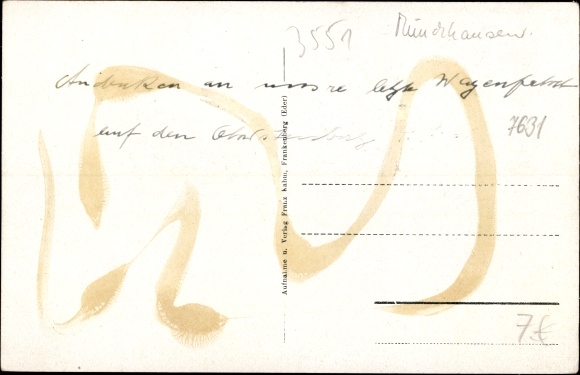 3551 Münchhausen.
Andenken an unsre letzte Wagenfahrt
auf den
7631
Aufnahme u. Verlag Franz Kahm, Frankenberg (Eder)
7€